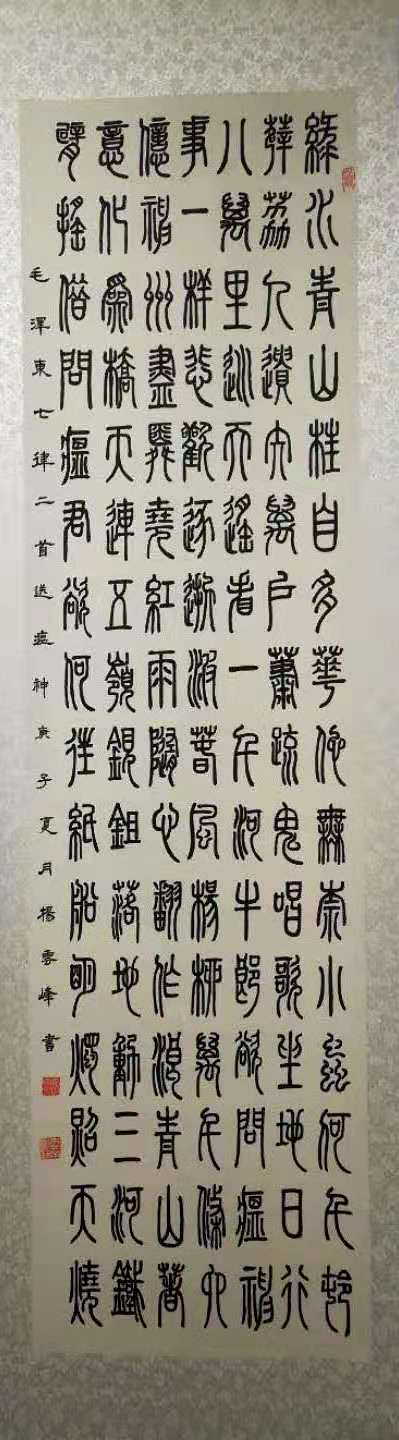 綠水青山枉自多華佗無奈小蟲何千村
薜荔人遺矢萬戶蕭疏鬼唱歌坐地日行
八萬里巡天遙看一千河牛郎欲問瘟神
事一樣悲歡逐逝波春風楊柳萬千條六
億神州盡舜堯紅雨隨心翻作浪青山著
意化為橋天連五嶺銀鉏落地動三河鐵
臂搖借問瘟君欲何往紙船明燭照天燒
毛澤東七律二首送瘟神庚子夏月楊雲峰書